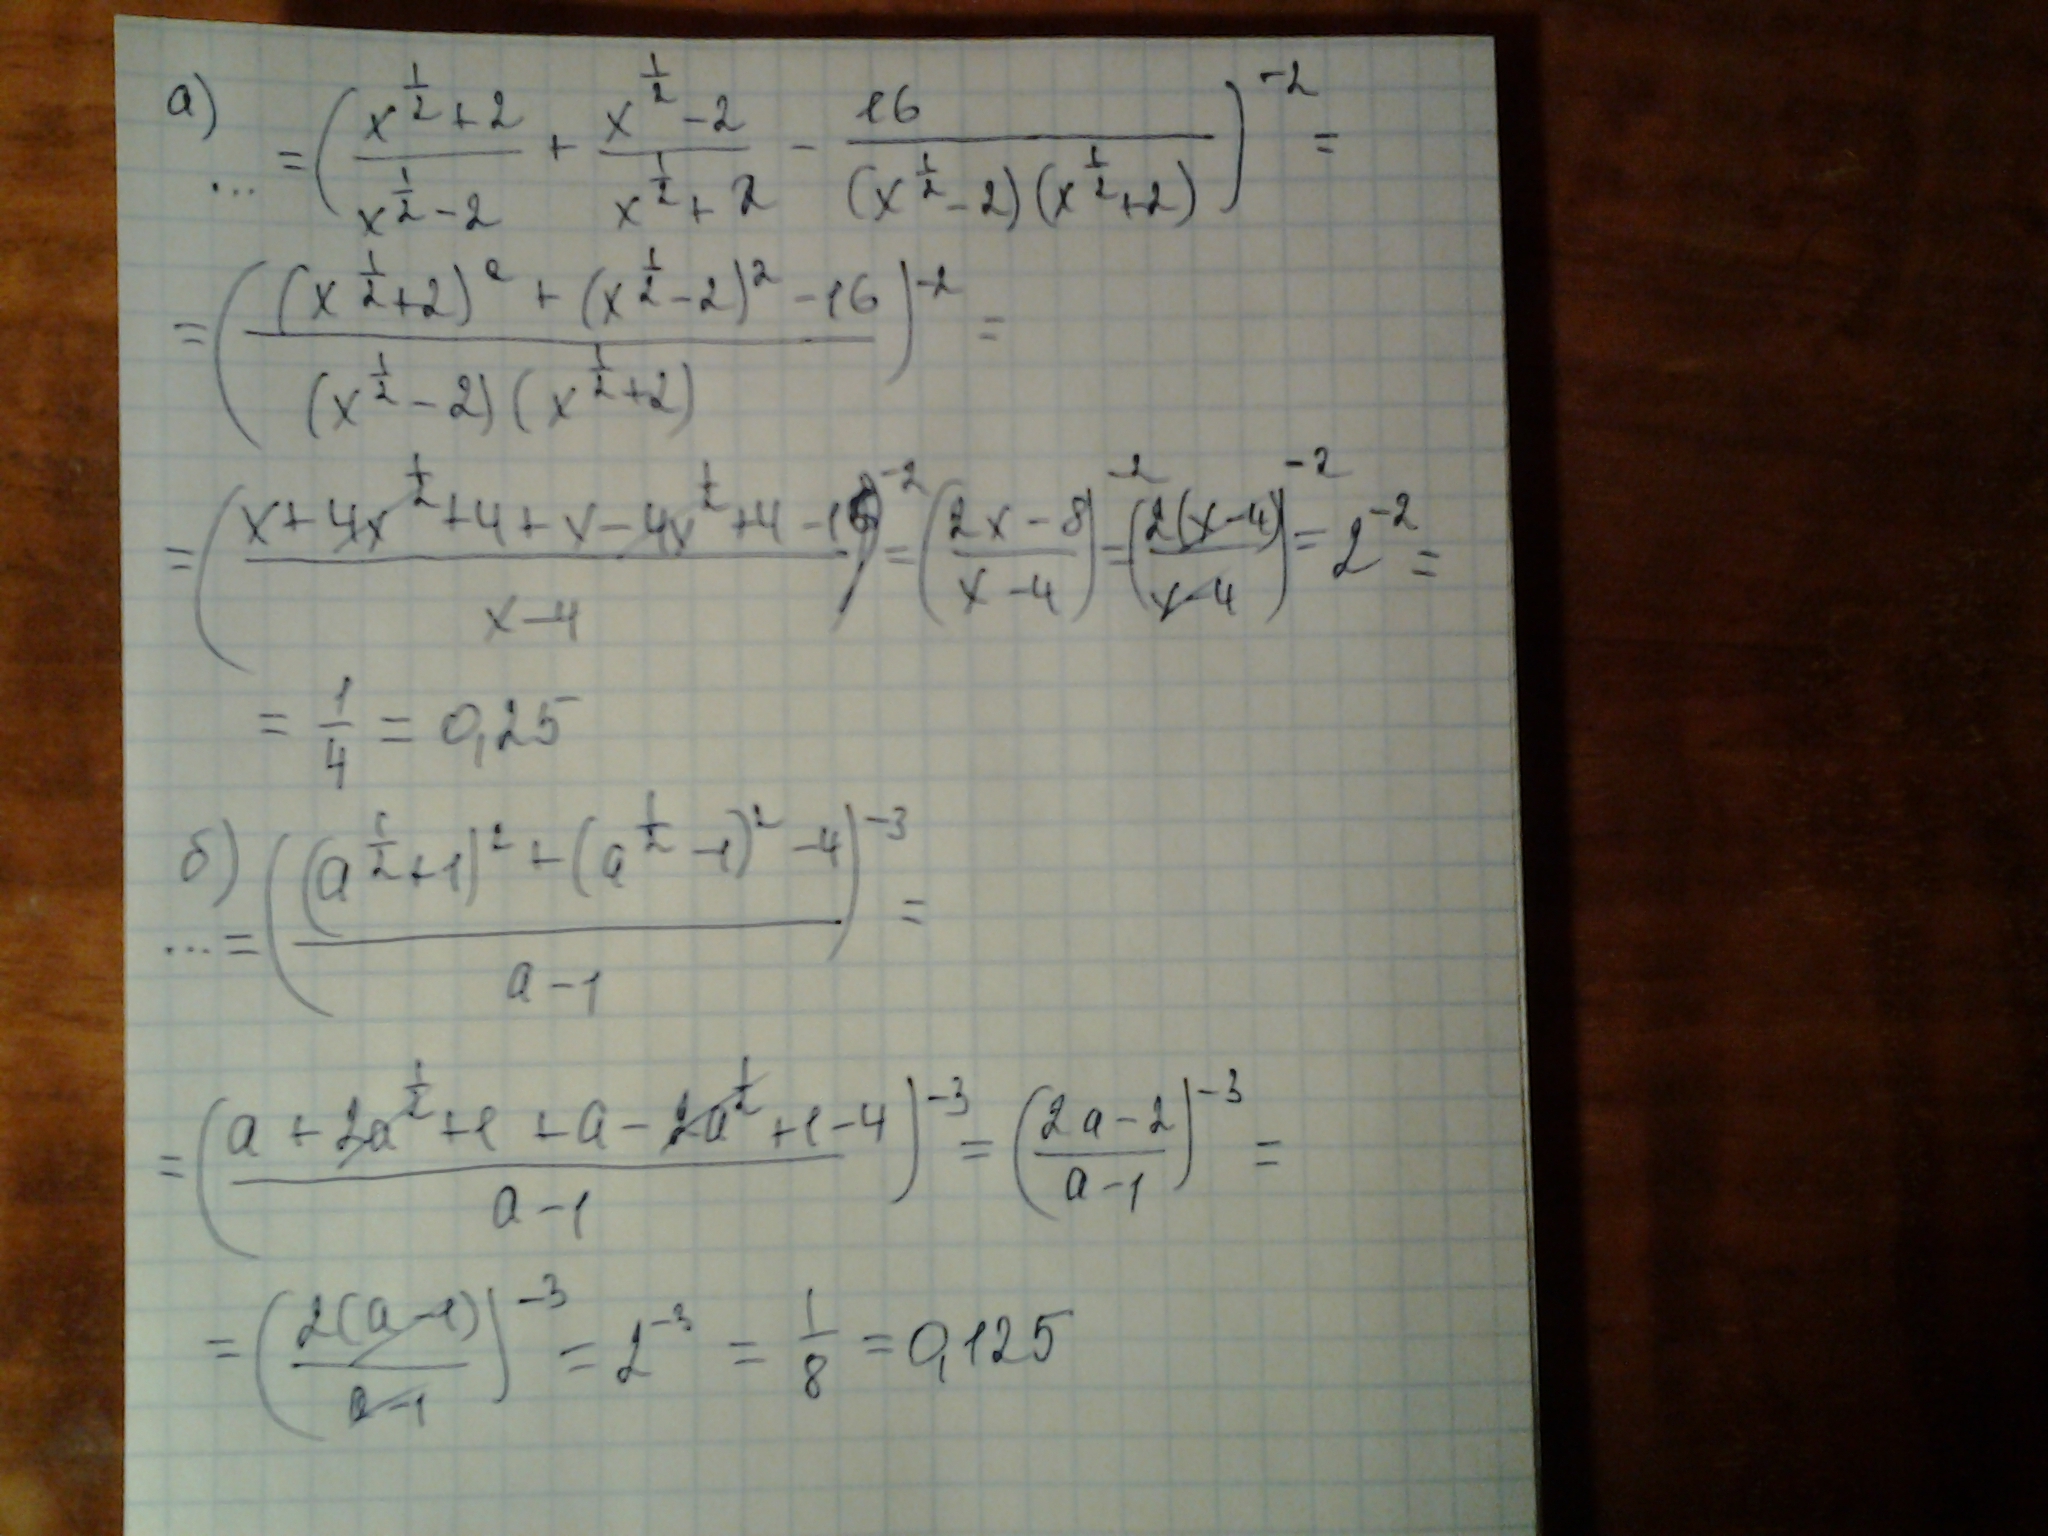 а)
... = ( (x^(1/2)+2)/(x^(1/2)-2) + (x^(1/2)-2)/(x^(1/2)+2) - 16/((x^(1/2)-2)(x^(1/2)+2)) )^-2 =
= ( ((x^(1/2)+2)^2 + (x^(1/2)-2)^2 - 16)/((x^(1/2)-2)(x^(1/2)+2)) )^-2 =
= ( (x+4x^(1/2)+4+x-4x^(1/2)+4-16)/(x-4) )^-2 = ( (2x-8)/(x-4) )^-2 = ( (2(x-4))/(x-4) )^-2 = 2^-2 =
= 1/4 = 0,25
б)
... = ( ((a^(1/2)+1)^2 + (a^(1/2)-1)^2 - 4)/(a-1) )^-3 =
= ( (a+2a^(1/2)+1+a-2a^(1/2)+1-4)/(a-1) )^-3 = ( (2a-2)/(a-1) )^-3 =
= ( (2(a-1))/(a-1) )^-3 = 2^-3 = 1/8 = 0,125